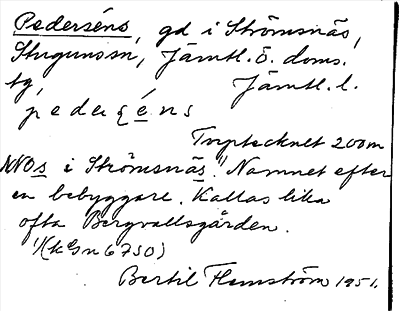 Pederséns, gd i Strömsnäs,
Stugunssn, Jämtl. ö. doms.
tg, Jämtl. l.
pederséns
Inprickat 200m
NNOs i Strömsnäs.¹⁾ Namnet efter
en bebyggare. Kallas lika
ofta Bergvallsgården.
1/(kGn 6750)
Bertil Flemström 1951.